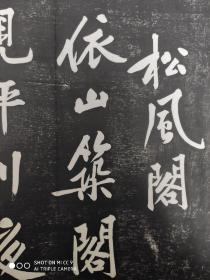 松風閣
依山築閣
見平川夜
SHOT ON MI CC 9
AI TRIPLE CAMERA